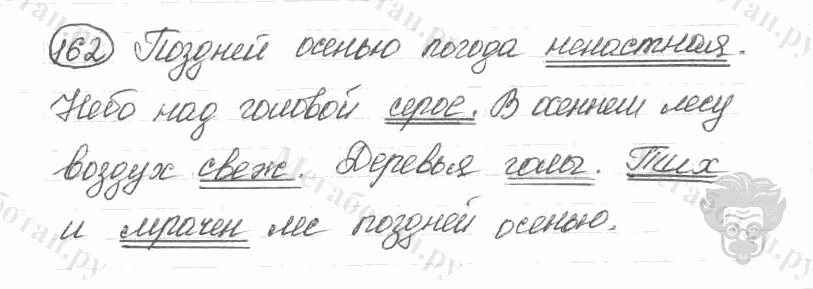 162 Поздней осенью погода ненастная.
Небо над головой серое. В осеннем лесу
воздух свеж. Деревья голы. Тих
и мрачен лес поздней осенью.
Мегаботан.ру